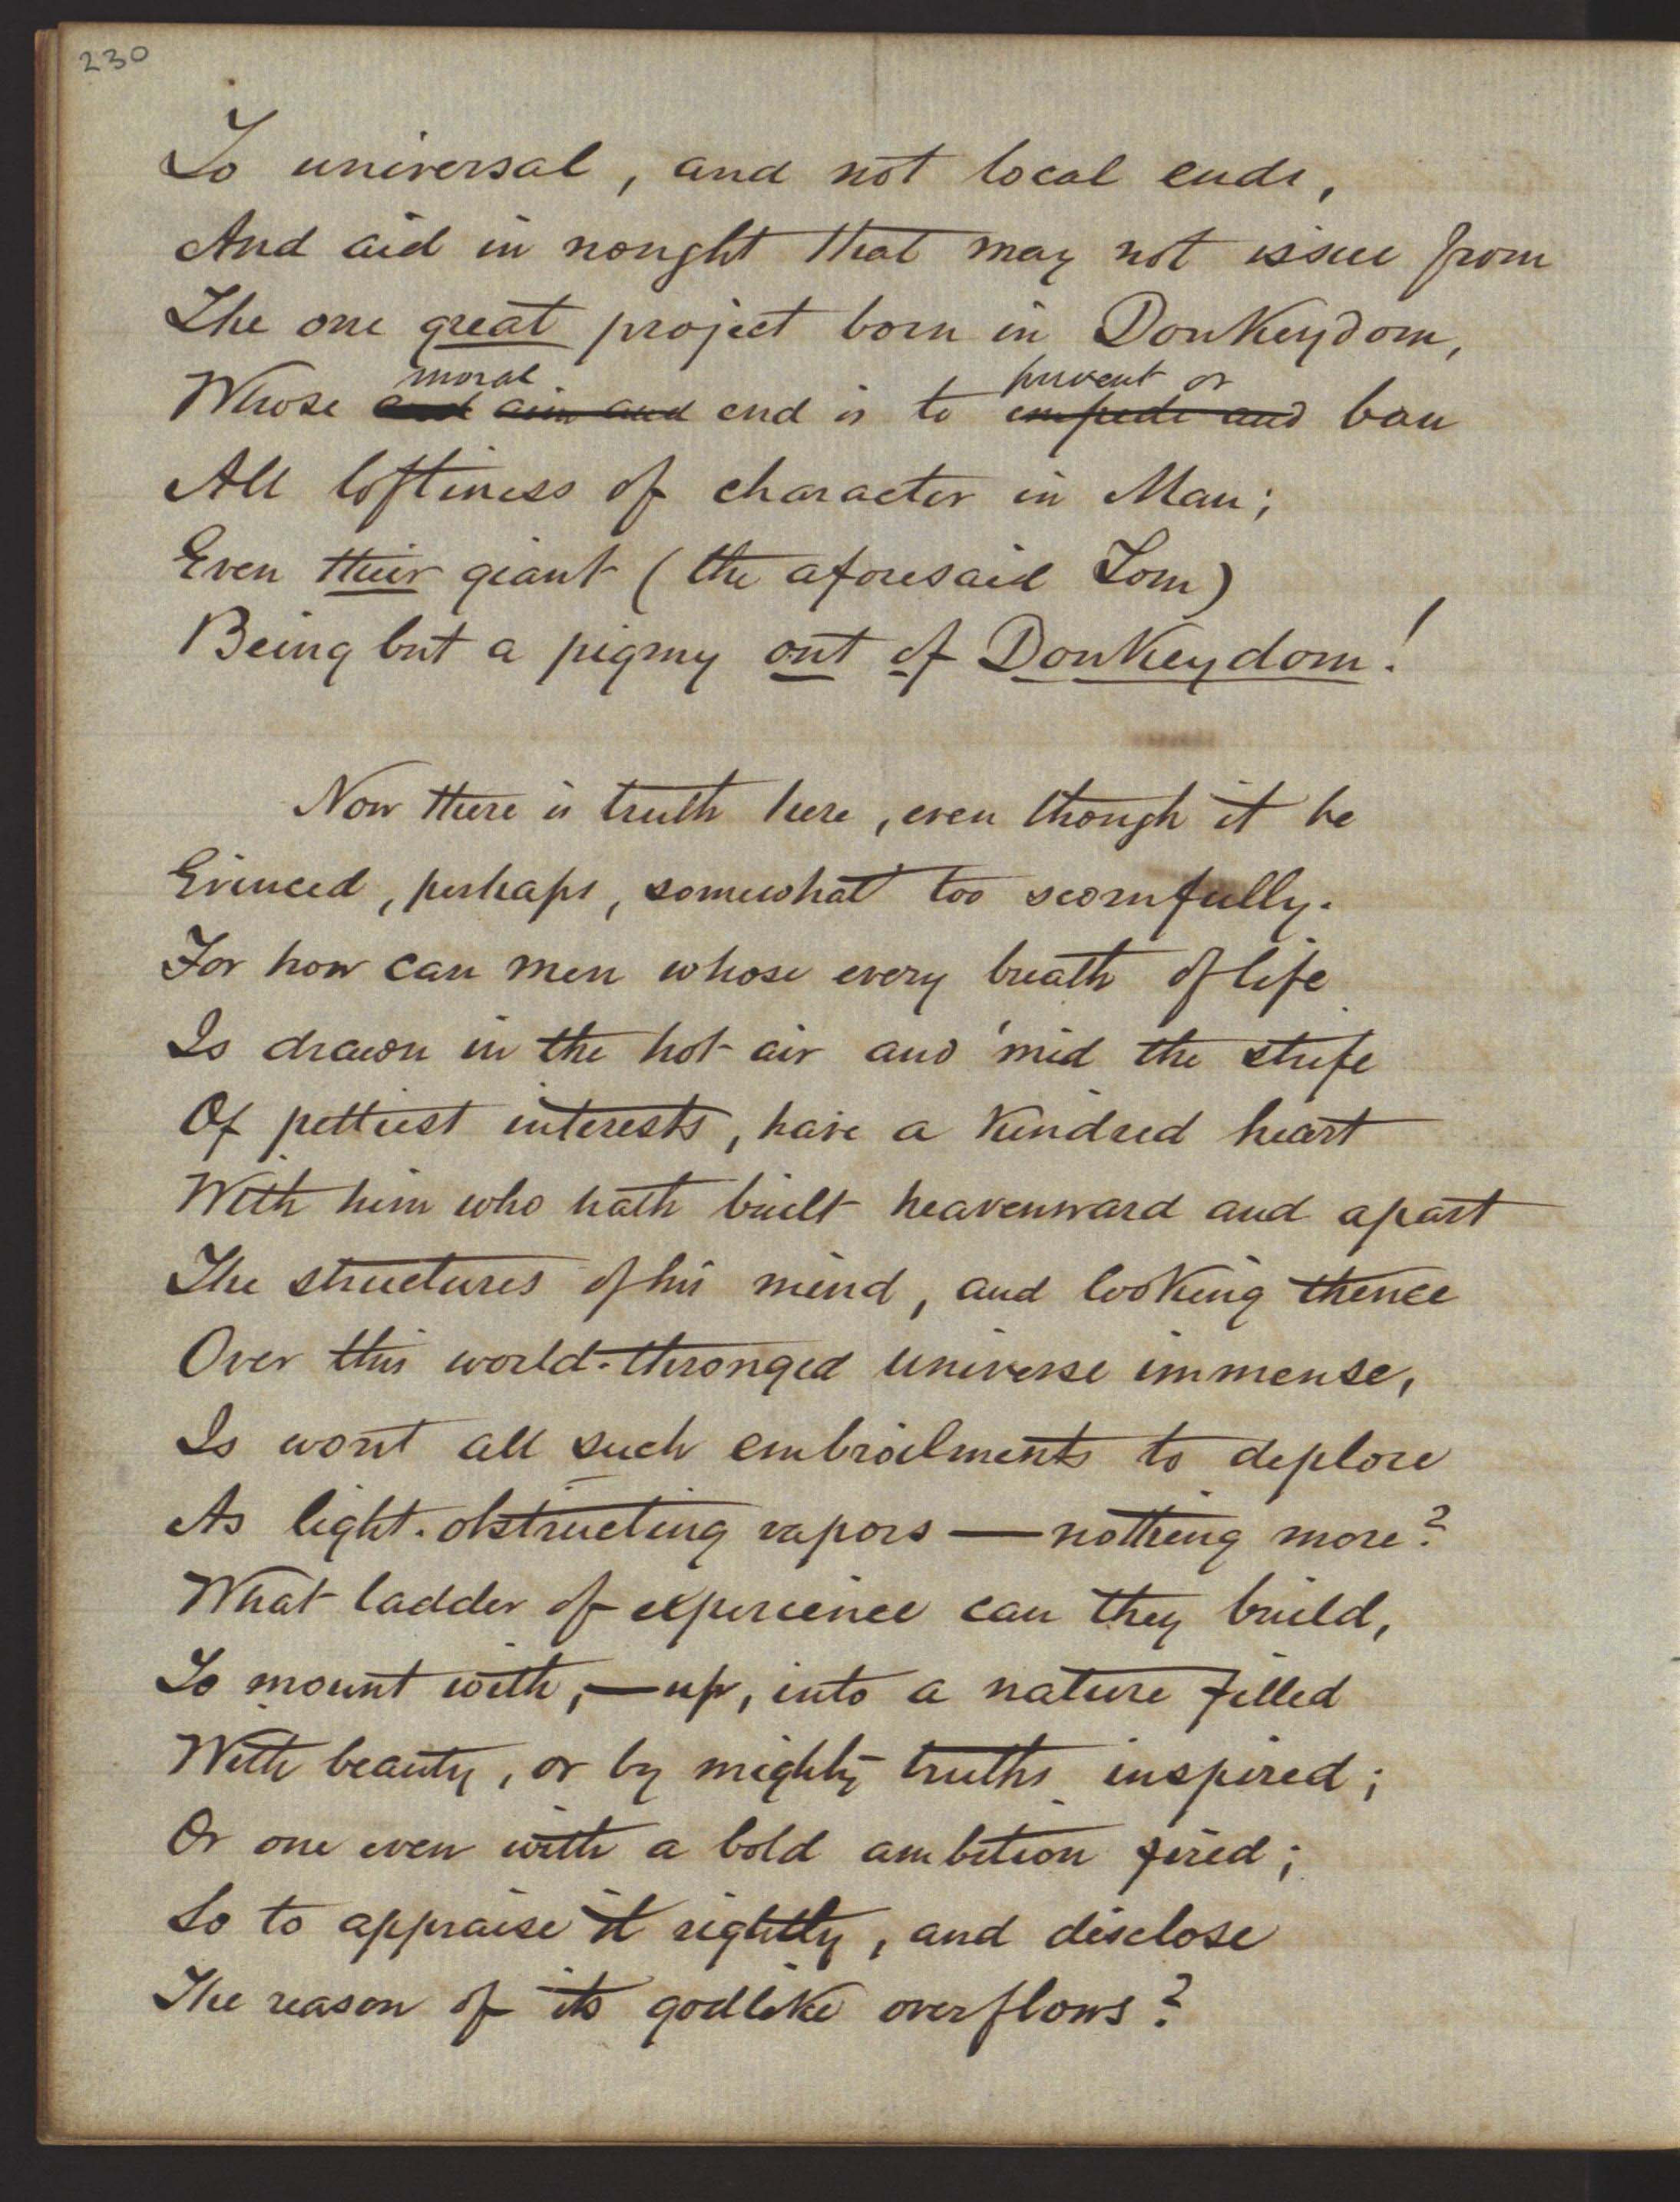 230
To universal, and not local ends,
And aid in nought that may not issue from
The one great project born in Donkeydom,
moral prevent or
Whose end aim and end is to impede and ban
All loftiness of character in Man;
Even their giant (the aforesaid Tom)
Being but a pigmy out of Donkeydom!
Now there is truth here, even though it be
Evinced, perhaps, somewhat too scornfully.
For how can men whose every breath of life
Is drawn in the hot air and 'mid the strife
Of pettiest interests, have a kindred heart
With him who hath built heavenward and apart
The structures of his mind, and looking thence
Over this world-thronged universe immense,
Is wont all such embroilments to deplore
As light-obstructing vapors — nothing more?
What ladder of experience can they build,
To mount with, — up, into a nature filled
With beauty, or by mighty truths inspired;
Or one even with a bold ambition fired;
So to appraise it rightly, and disclose
The reason of its godlike overflows?